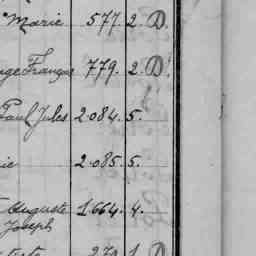 Marie 577. 2. D.
François 779. 2. D.
Paul Jules 2.084. 5.
ie 2.085. 5.
Auguste 1.664. 4.
Joseph
279 1. D